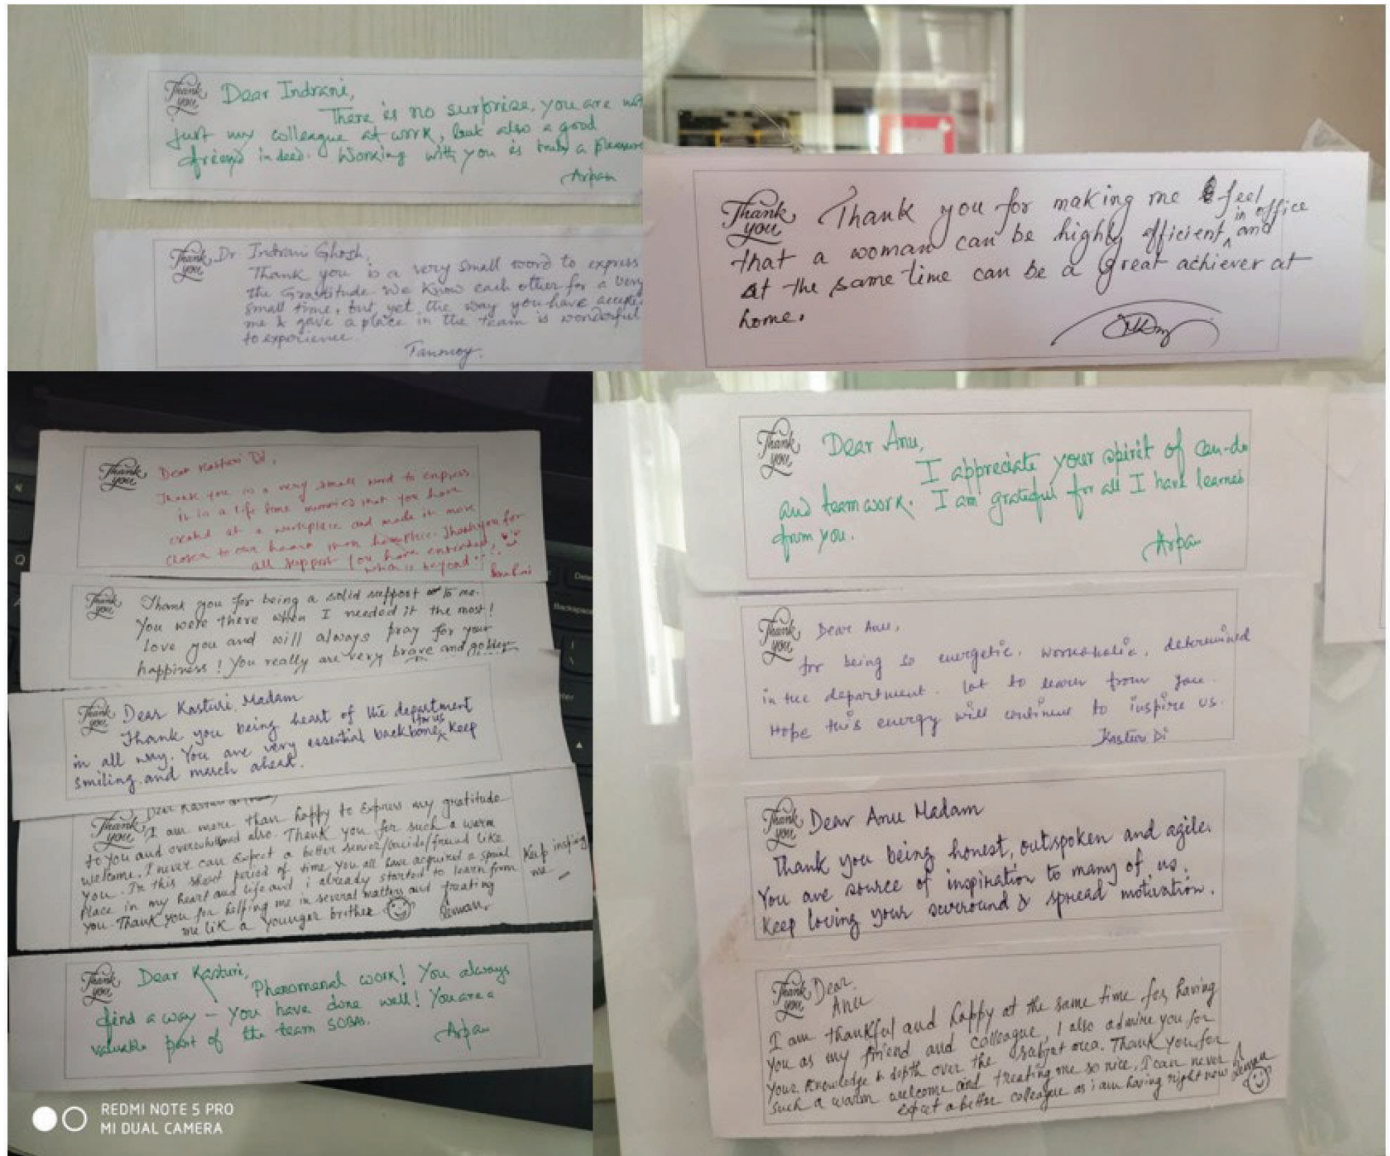 Thank you
Dear Indrani,
There is no surprise, you are not
just my colleague at work, but also a good
friend indeed. Working with you is truly a pleasure
Arpan
Thank you
Dr Indrani Ghosh,
Thank you is a very small word to express
the Gratitude. We know each other for a very
small time, but yet the way you have
me & gave a place in the team is wonderful
to experience.
Tanmoy.
Thank you
Thank you for making me feel
that a woman can be highly efficient in office and
at the same time can be a great achiever at
home.
Thank you
Dear Kasturi Di,
Thank you is a very small word to express
it is a life time memories that you have
created at a workplace and made it more
closer to our heart than Thank you for
all support you have extended,
which is beyond
Thank you
Thank you for being a solid support to me.
You were there when I needed it the most!
Love you and will always pray for your
happiness! You really are very brave and
Thank you
Dear Kasturi Madam
Thank you being heart of the department
in all way. You are very essential backbone for us, keep
smiling and march ahead.
Thank you
Dear Kasturi
I am more than happy to express my gratitude
to you and overwhelmed also. Thank you for such a warm
welcome. I never can expect a better senior/guide/friend like
you. In this short period of time you all have acquired a special
place in my heart and life and i already started to learn from
you. Thank you for helping me in several matters and treating
me lik a younger brother
Keep inspiring
me
Thank you
Dear Kasturi,
Phenomenal work! You always
find a way – You have done well! You are a
valuable part of the team SOBAS.
Arpan
REDMI NOTE 5 PRO
MI DUAL CAMERA
Thank you
Dear Anu,
I appreciate your spirit of can-do
and team work. I am grateful for all I have learned
from you.
Arpan
Thank you
Dear Anu,
for being so energetic, workaholic, determined
in the department. lot to learn from you.
Hope this energy will continue to inspire us.
Kasturi Di
Thank you
Dear Anu Madam
Thank you being honest, outspoken and agile.
You are source of inspiration to many of us.
Keep loving your surround & spread motivation.
Thank you
Dear
Anu
I am thankful and happy at the same time for having
you as my friend and colleague, I also admire you for
your knowledge & depth over the subject area. Thank you for
such a warm welcome and treating me so nice, I can never
expect a better colleague as i am having right now